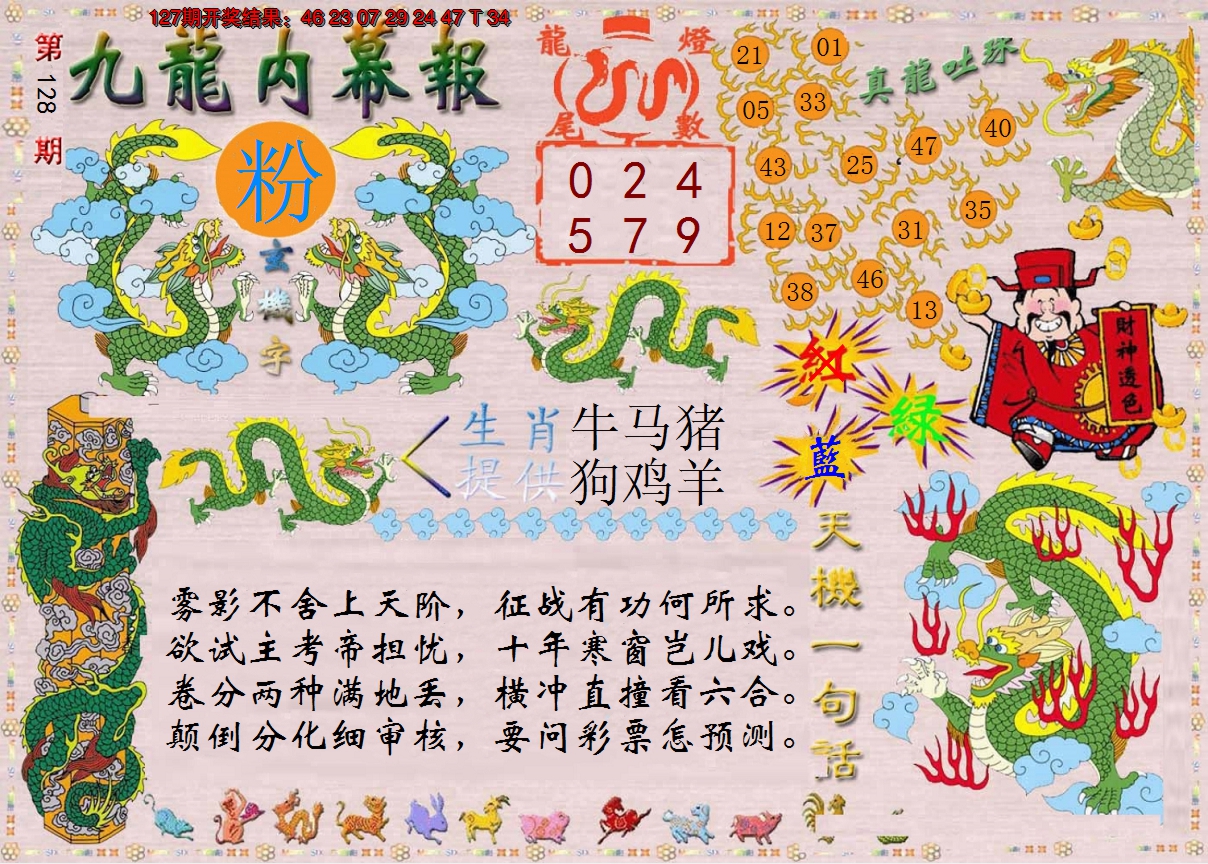 127期开奖结果：46 23 07 29 24 47 T 34
第128期
九龍内幕報
粉
玄機字
龍燈
尾數
0 2 4
5 7 9
真龍吐珠
21
01
05
33
47
40
43
25
35
12
37
31
38
46
13
財神透色
紅
綠
藍
生肖 牛马猪
提供 狗鸡羊
天機一句話
雾影不舍上天阶，征战有功何所求。
欲试主考帝担忧，十年寒窗岂儿戏。
卷分两种满地丢，横冲直撞看六合。
颠倒分化细审核，要问彩票怎预测。